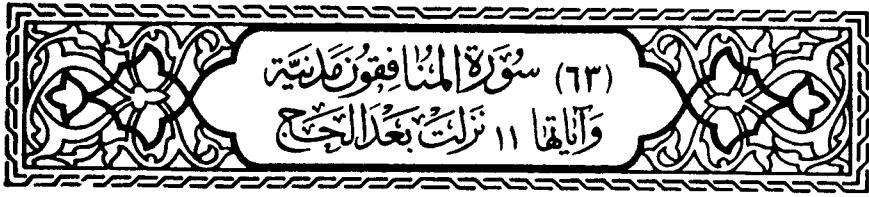 (٦٣) سُورَة المنَافِقُون مَدَنيَّة
وَآيَاتها ١١ نَزلَتْ بَعْدَ الحَجّ